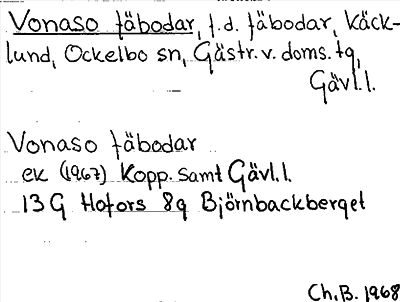 Vonaso fäbodar, f.d. fäbodar, Käck-
lund, Ockelbo sn, Gästr. v. doms. tg,
Gävl. l.
Vonaso fäbodar
ek (1967) Kopp. samt Gävl. l.
13 G Hofors 8g Björnbackberget
Ch. B. 1968